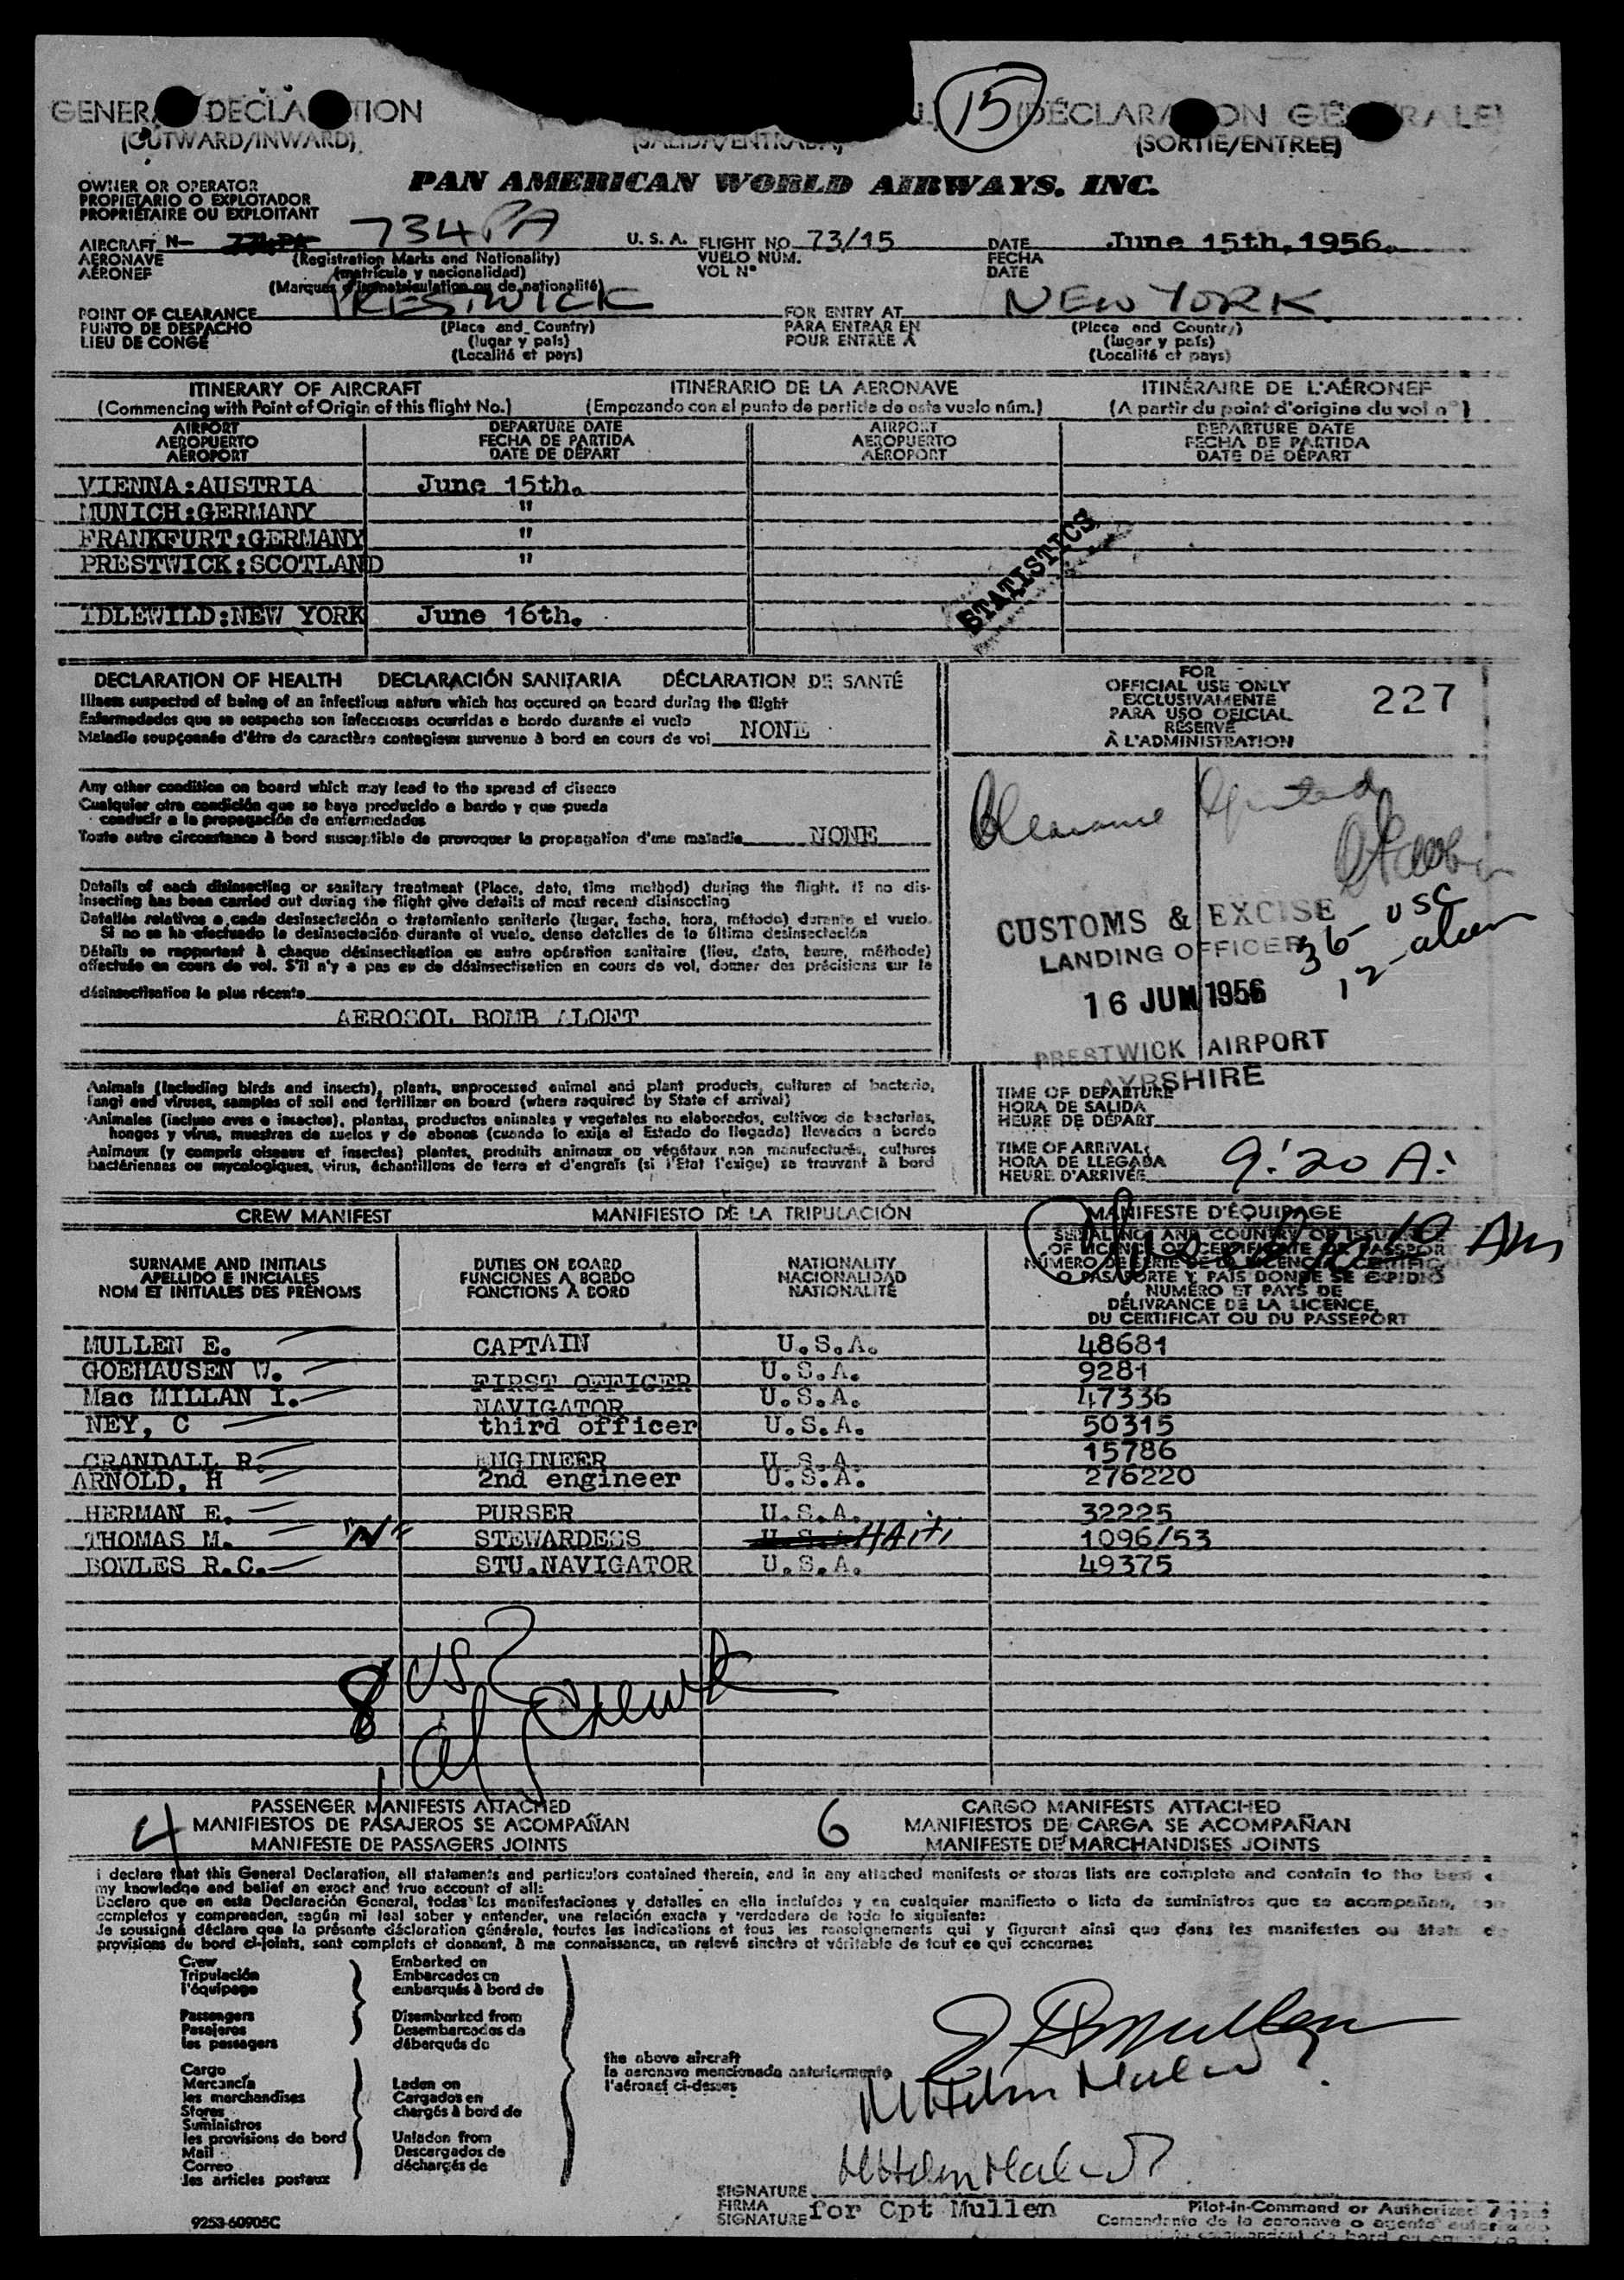 GENERA DECLA TION
(OUTWARD/INWARD)
(SALIDA/ENTRADA)
15
(DÉCLARA ON GÉ RALE)
(SORTIE/ENTREE)
OWNER OR OPERATOR
PROPIETARIO O EXPLOTADOR
PROPRIÉTAIRE OU EXPLOITANT
PAN AMERICAN WORLD AIRWAYS, INC.
AIRCRAFT N- 734PA U. S. A. FLIGHT NO. 73/15 DATE June 15th, 1956.
AERONAVE (Registration Marks and Nationality) VUELO NÚM. FECHA
AÉRONEF (matrícula y nacionalidad) VOL N° DATE
(Marques d'immatriculation ou de nationalité)
POINT OF CLEARANCE PRESTWICK FOR ENTRY AT NEW YORK
PUNTO DE DESPACHO (Place and Country) PARA ENTRAR EN (Place and Country)
LIEU DE CONGÉ (lugar y país) POUR ENTRÉE À (lugar y país)
(Localité et pays) (Localité et pays)
ITINERARY OF AIRCRAFT ITINERARIO DE LA AERONAVE ITINÉRAIRE DE L'AÉRONEF
(Commencing with Point of Origin of this flight No.) (Empezando con el punto de partida de este vuelo núm.) (A partir du point d'origine du vol n°)
AIRPORT DEPARTURE DATE AIRPORT DEPARTURE DATE
AEROPUERTO FECHA DE PARTIDA AEROPUERTO FECHA DE PARTIDA
AÉROPORT DATE DE DÉPART AÉROPORT DATE DE DÉPART
VIENNA:AUSTRIA June 15th.
MUNICH:GERMANY "
FRANKFURT:GERMANY "
PRESTWICK:SCOTLAND "
IDLEWILD:NEW YORK June 16th.
STATISTICS
DECLARATION OF HEALTH DECLARACIÓN SANITARIA DÉCLARATION DE SANTÉ
Illness suspected of being of an infectious nature which has occured on board during the flight
Enfermedades que se sospecha son infecciosas ocurridas a bordo durante el vuelo
Maladie soupçonnée d'être de caractère contagieux survenue à bord en cours de vol NONE
Any other condition on board which may lead to the spread of disease
Cualquier otra condición que se haya producido a bordo y que pueda
conducir a la propagación de enfermedades
Toute autre circonstance à bord susceptible de provoquer la propagation d'une maladie NONE
Details of each disinsecting or sanitary treatment (Place, date, time method) during the flight. If no dis-
insecting has been carried out during the flight give details of most recent disinsecting
Detalles relativos a cada desinsectación o tratamiento sanitario (lugar, fecha, hora, método) durante el vuelo.
Si no se ha efectuado la desinsectación durante el vuelo, dense detalles de la última desinsectación
Détails se rapportant à chaque désinsectisation ou autre opération sanitaire (lieu, date, heure, méthode)
effectuée en cours de vol. S'il n'y a pas eu de désinsectisation en cours de vol, donner des précisions sur la
désinsectisation la plus récente
AEROSOL BOMB ALOFT
FOR
OFFICIAL USE ONLY
EXCLUSIVAMENTE
PARA USO OFICIAL
RÉSERVÉ
À L'ADMINISTRATION
227
Clearance Granted
CUSTOMS & EXCISE
LANDING OFFICER
36- USC
12- alien
16 JUN 1956
PRESTWICK AIRPORT
AYRSHIRE
Animals (including birds and insects), plants, unprocessed animal and plant products, cultures of bacteria,
fungi and viruses, samples of soil and fertilizer on board (where required by State of arrival)
Animales (incluso aves e insectos), plantas, productos animales y vegetales no elaborados, cultivos de bacterias,
hongos y virus, muestras de suelos y de abonos (cuando lo exija el Estado de llegada) llevados a bordo
Animaux (y compris oiseaux et insectes) plantes, produits animaux ou végétaux non manufacturés, cultures
bactériennes ou mycologiques, virus, échantillons de terre et d'engrais (si l'Etat l'exige) se trouvant à bord
TIME OF DEPARTURE
HORA DE SALIDA
HEURE DE DÉPART
TIME OF ARRIVAL
HORA DE LLEGADA
HEURE D'ARRIVÉE 9:20 A:
10 Am
CREW MANIFEST MANIFIESTO DE LA TRIPULACIÓN MANIFESTE D'ÉQUIPAGE
SURNAME AND INITIALS DUTIES ON BOARD NATIONALITY SERIAL NO. AND COUNTRY OF ISSUE
APELLIDO E INICIALES FUNCIONES A BORDO NACIONALIDAD OF LICENCE OR CERTIFICATE OR PASSPORT
NOM ET INITIALES DES PRÉNOMS FONCTIONS À BORD NATIONALITÉ NÚMERO DE SERIE DE LA LICENCIA, CERTIFICA
O PASAPORTE Y PAÍS DONDE SE EXPIDIÓ
NUMÉRO ET PAYS DE
DÉLIVRANCE DE LA LICENCE,
DU CERTIFICAT OU DU PASSEPORT
MULLEN E. CAPTAIN U.S.A. 48681
GOEHAUSEN W. FIRST OFFICER U.S.A. 9281
Mac MILLAN I. NAVIGATOR U.S.A. 47336
NEY, C third officer U.S.A. 50315
CRANDALL R. ENGINEER U.S.A. 15786
ARNOLD, H 2nd engineer U.S.A. 276220
HERMAN E. PURSER U.S.A. 32225
THOMAS M. "N" STEWARDESS U.S.A. HAITI 1096/53
BOWLES R.C. STU.NAVIGATOR U.S.A. 49375
8 US
1 al
4 PASSENGER MANIFESTS ATTACHED 6 CARGO MANIFESTS ATTACHED
MANIFIESTOS DE PASAJEROS SE ACOMPAÑAN MANIFIESTOS DE CARGA SE ACOMPAÑAN
MANIFESTE DE PASSAGERS JOINTS MANIFESTE DE MARCHANDISES JOINTS
I declare that this General Declaration, all statements and particulars contained therein, and in any attached manifests or stores lists are complete and contain to the best
my knowledge and belief an exact and true account of all:
Declaro que en esta Declaración General, todas las manifestaciones y detalles en ella incluídos y en cualquier manifiesto o lista de suministros que se acompañan, son
completos y comprenden, según mi leal saber y entender, una relación exacta y verdadera de todo lo siguiente:
Je soussigné déclare que la présente déclaration générale, toutes les indications et tous les renseignements qui y figurent ainsi que dans les manifestes ou états de
provisions de bord ci-joints, sont complets et donnent, à ma connaissance, un relevé sincère et véritable de tout ce qui concerne:
Crew Embarked on
Tripulación Embarcados en
l'équipage embarqués à bord de
Passengers Disembarked from
Pasajeros Desembarcados de
les passagers débarqués de
the above aircraft
la aeronave mencionada anteriormente
l'aéronef ci-dessus
Cargo
Mercancía Laden on
les marchandises Cargados en
Stores chargés à bord de
Suministros
les provisions de bord Unladen from
Mail Descargados de
Correo déchargés de
les articles postaux
SIGNATURE
FIRMA for Cpt Mullen
SIGNATURE
Pilot-in-Command or Authorized Agent
Comandante de la aeronave o agente
9253-60905C